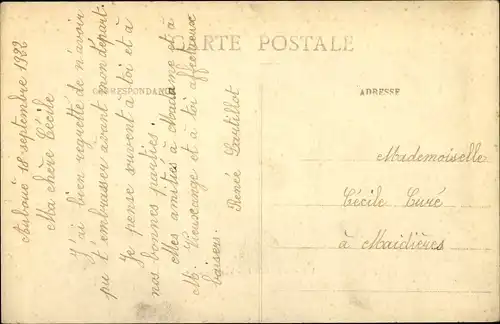 CARTE POSTALE
CORRESPONDANCE
ADRESSE
Auboué 18 septembre 1922
Ma chère Cécile
J'ai bien regretté de n'avoir
pu t'embrasser avant mon départ.
Je pense souvent à toi et à
nos bonnes parties.
Mes amitiés à Madame et à
M. Vieuxange et à toi affectueux
baisers.
Renée Lautillot
Mademoiselle
Cécile Curé
à Maidières